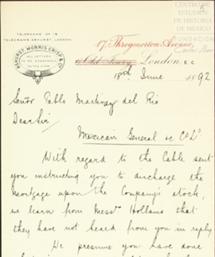 CENTRO DE
ESTUDIOS
DE HISTORIA
DE MEXICO
TELEPHONE Nº 19
TELEGRAMS ASHURST LONDON
ASHURST, MORRIS, CRISP & Co
17, Throgmorton Avenue,
London, E.C.
June 1892
Señor Pablo Martinez del Rio
Dear Sir
Mexican General &c Co Ld
With regard to the Cable sent
you instructing you to discharge the
mortgage upon the Company's stock,
we learn from Messrs Hollams that
they have not heard from you in reply
We presume you have done